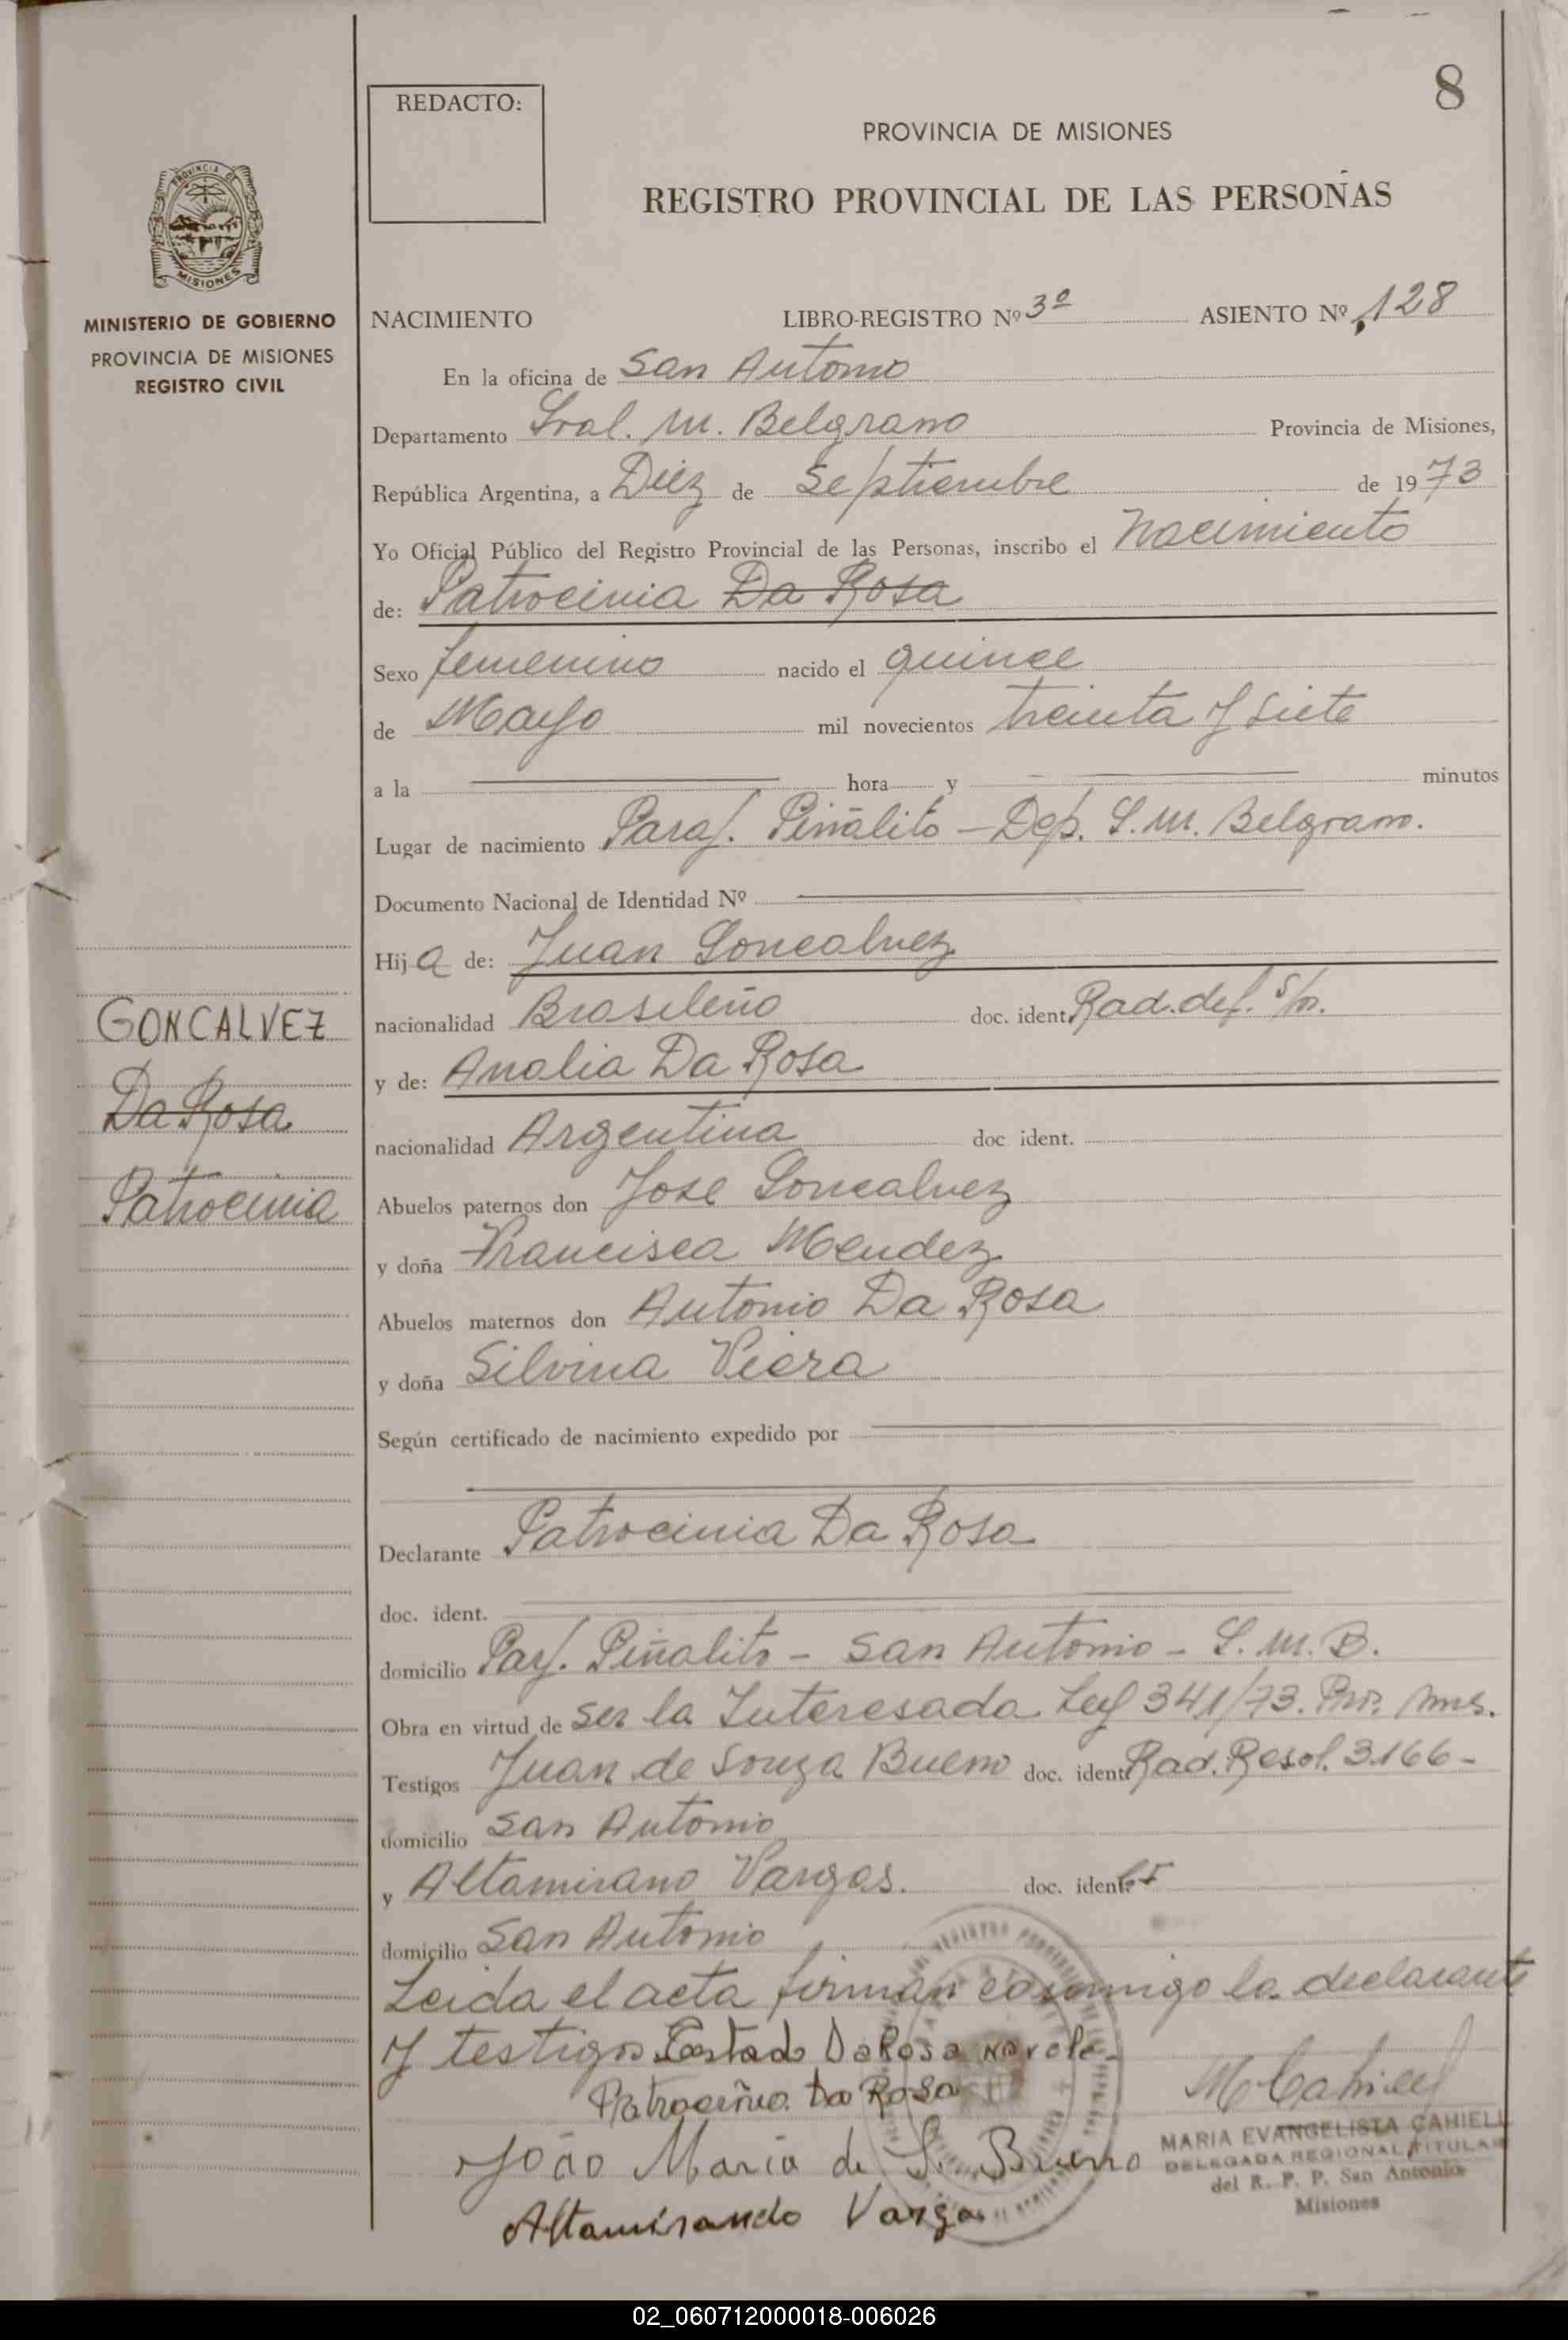 8
REDACTO:
PROVINCIA DE MISIONES
REGISTRO PROVINCIAL DE LAS PERSONAS
PROVINCIA DE
MISIONES
MINISTERIO DE GOBIERNO
PROVINCIA DE MISIONES
REGISTRO CIVIL
NACIMIENTO LIBRO-REGISTRO Nº 3º ASIENTO Nº 128
En la oficina de San Antonio
Departamento Gral. M. Belgrano Provincia de Misiones,
República Argentina, a Diez de Septiembre de 1973
Yo Oficial Público del Registro Provincial de las Personas, inscribo el Nacimiento
de: Patrocinia Da Rosa
Sexo femenino nacido el quince
de Mayo mil novecientos treinta y siete
a la hora y minutos
Lugar de nacimiento Paraj. Piñalito - Dep. G. M. Belgrano.
Documento Nacional de Identidad Nº
Hija de: Juan Goncalvez
nacionalidad Brasileño doc. ident. Rad. def. s/n.
y de: Analia Da Rosa
nacionalidad Argentina doc ident.
Abuelos paternos don Jose Goncalvez
y doña Francisca Mendez
Abuelos maternos don Antonio Da Rosa
y doña Silvina Viera
Según certificado de nacimiento expedido por
Declarante Patrocinia Da Rosa
doc. ident.
domicilio Parj. Piñalito - San Antonio - G. M. B.
Obra en virtud de ser la Interesada Ley 341/73. Mns.
Testigos Juan de Souza Bueno doc. ident. Rad. Resol. 3166-
domicilio San Antonio
y Altamirano Vargas. doc. ident.
domicilio San Antonio
Leida el acta firman conmigo la declarante
y testigos Testado Da Rosa no vale-
Patrociñia Da Rosa
João Maria de S. Bueno
Altamirando Varga
M Cahiell
MARIA EVANGELISTA CAHIELL
DELEGADA REGIONAL TITULAR
del R. P. P. San Antonio
Misiones
GONCALVEZ
Da Rosa
Patrocinia
02_060712000018-006026